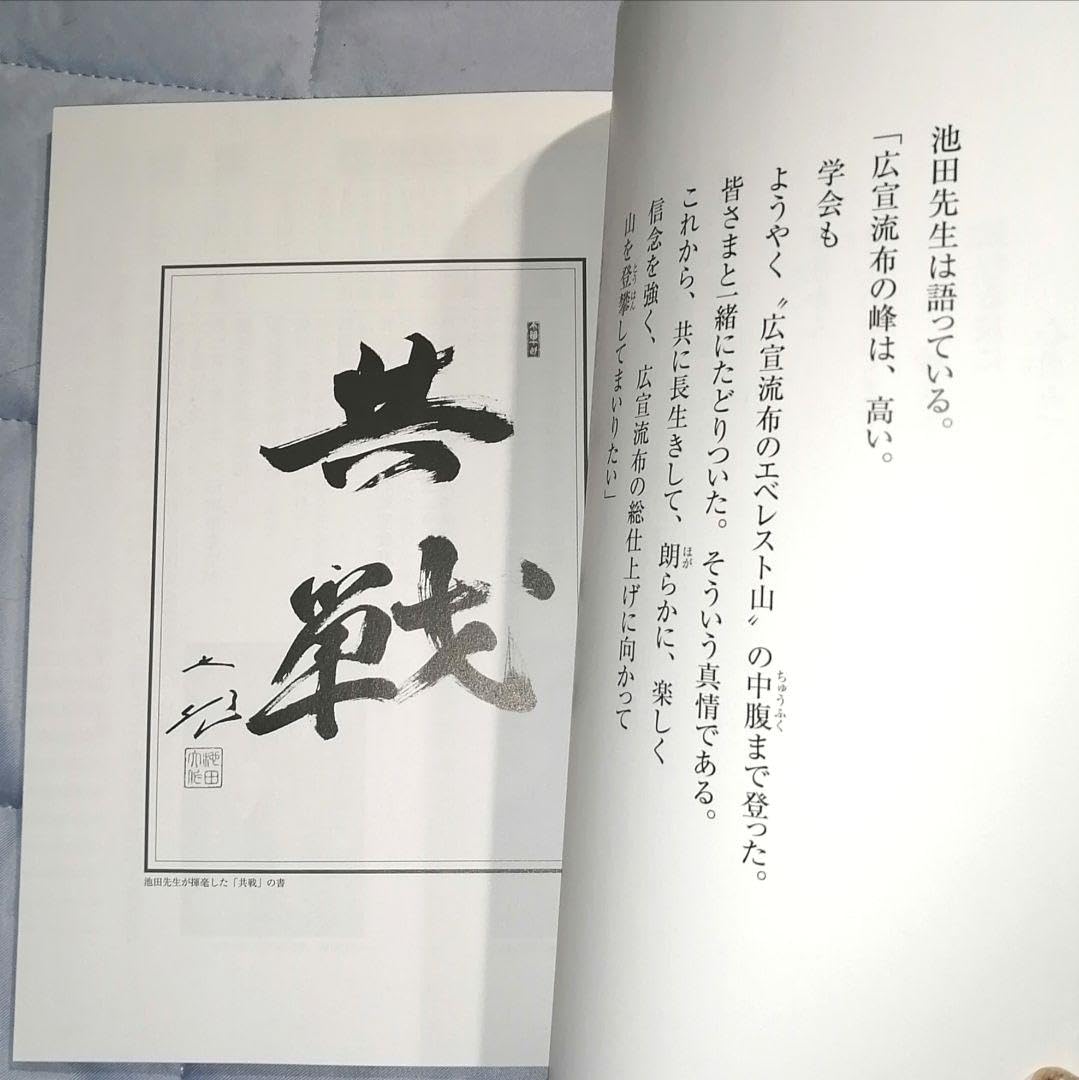 池田先生は語っている。
「広宣流布の峰は、高い。
学会も
ようやく〝広宣流布のエベレスト山〟の中腹まで登った。
ちゅうふく
皆さまと一緒にたどりついた。そういう真情である。
これから、共に長生きして、朗らかに、楽しく
ほが
信念を強く、広宣流布の総仕上げに向かって
山を登攀してまいりたい」
とうはん
共戦
池田
池田先生が揮毫した「共戦」の書